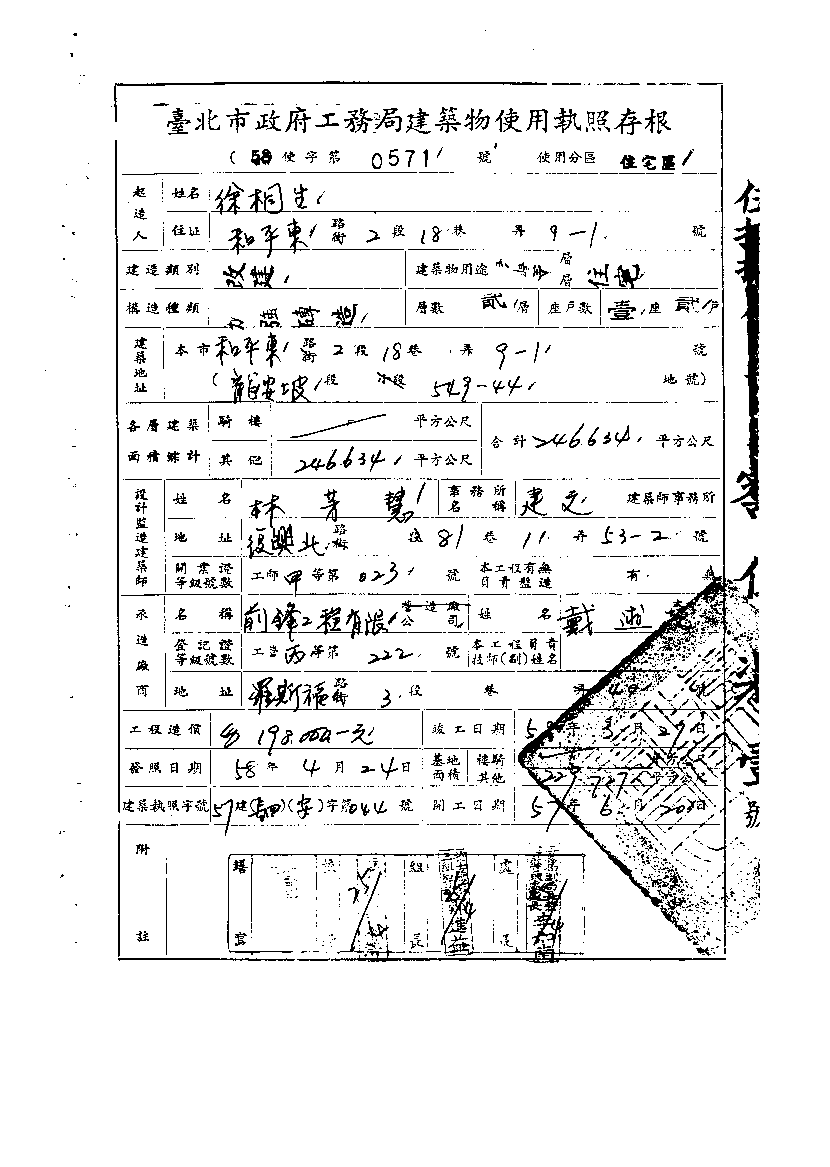 臺北市政府工務局建築物使用執照存根
(58使字第 0571 號 使用分區 住宅區
起造人 姓名 徐桐生
住址 和平東 路街 2 段 18 巷 弄 9-1 號
建造類別 改建 建築物用途 層層 住宅
構造種類 加強磚造 層數 貳層 座戶數 壹座貳戶
建築地址 本市 和平東 路街 2 段 18 巷 弄 9-1 號
(龍安坡 段 小段 549-44 地號)
各層建築面積總計 騎樓 平方公尺 合計 246634 平方公尺
其他 246634 平方公尺
設計監造建築師 姓名 林芳慧 事務所名稱 建文 建築師事務所
地址 復興北 路街 段 81 巷 11 弄 53-2 號
開業證等級號數 工師甲等第 023 號 本工程有無負責監造 有 無
承造廠商 名稱 前鋒工程有限 營造廠公司 姓名 戴
登記證等級號數 工營丙等第 222 號 本工程負責技師(副)姓名
地址 羅斯福 路街 3 段 巷 弄
工程造價 198,000-元 竣工日期 58年 3月 29日
發照日期 58年 4月 24日 基地面積 樓騎其他 平方公尺
建築執照字號 57建( )(字)字第044號 開工日期 57年 6月 20日
附註
繕 組 處
長 長